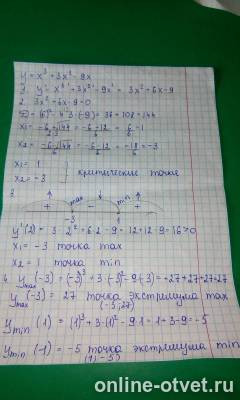 y = x³ + 3x² - 9x
y' = x³' + 3x²' - 9x' = 3x² + 6x - 9
2. 3x² + 6x - 9 = 0
D = (6)² - 4·3·(-9) = 36 + 108 = 144
x1 = -6+√144 = -6+12 = 6 = 1
x2 = -6-√144 = -6-12 = -18 = -3
x1 = 1
x2 = -3 } критические точки
3.
+ max - min +
-3 1
y'(2) = 3·2² + 6·2 - 9 = 12 + 12 - 9 = 15 > 0
x1 = -3 точка max
x2 = 1 точка min
4. y max (-3) = (-3)³ + 3·(-3)² - 9·(-3) = +27+27+27=27
y max (-3) = 27 точка экстремума max
(-3; 27)
y min (1) = (1)³ + 3·(1)² - 9·1 = 1 + 3 - 9 = -5
y min (-1) = -5 точка экстремума min
(1; -5)
online-otvet.ru